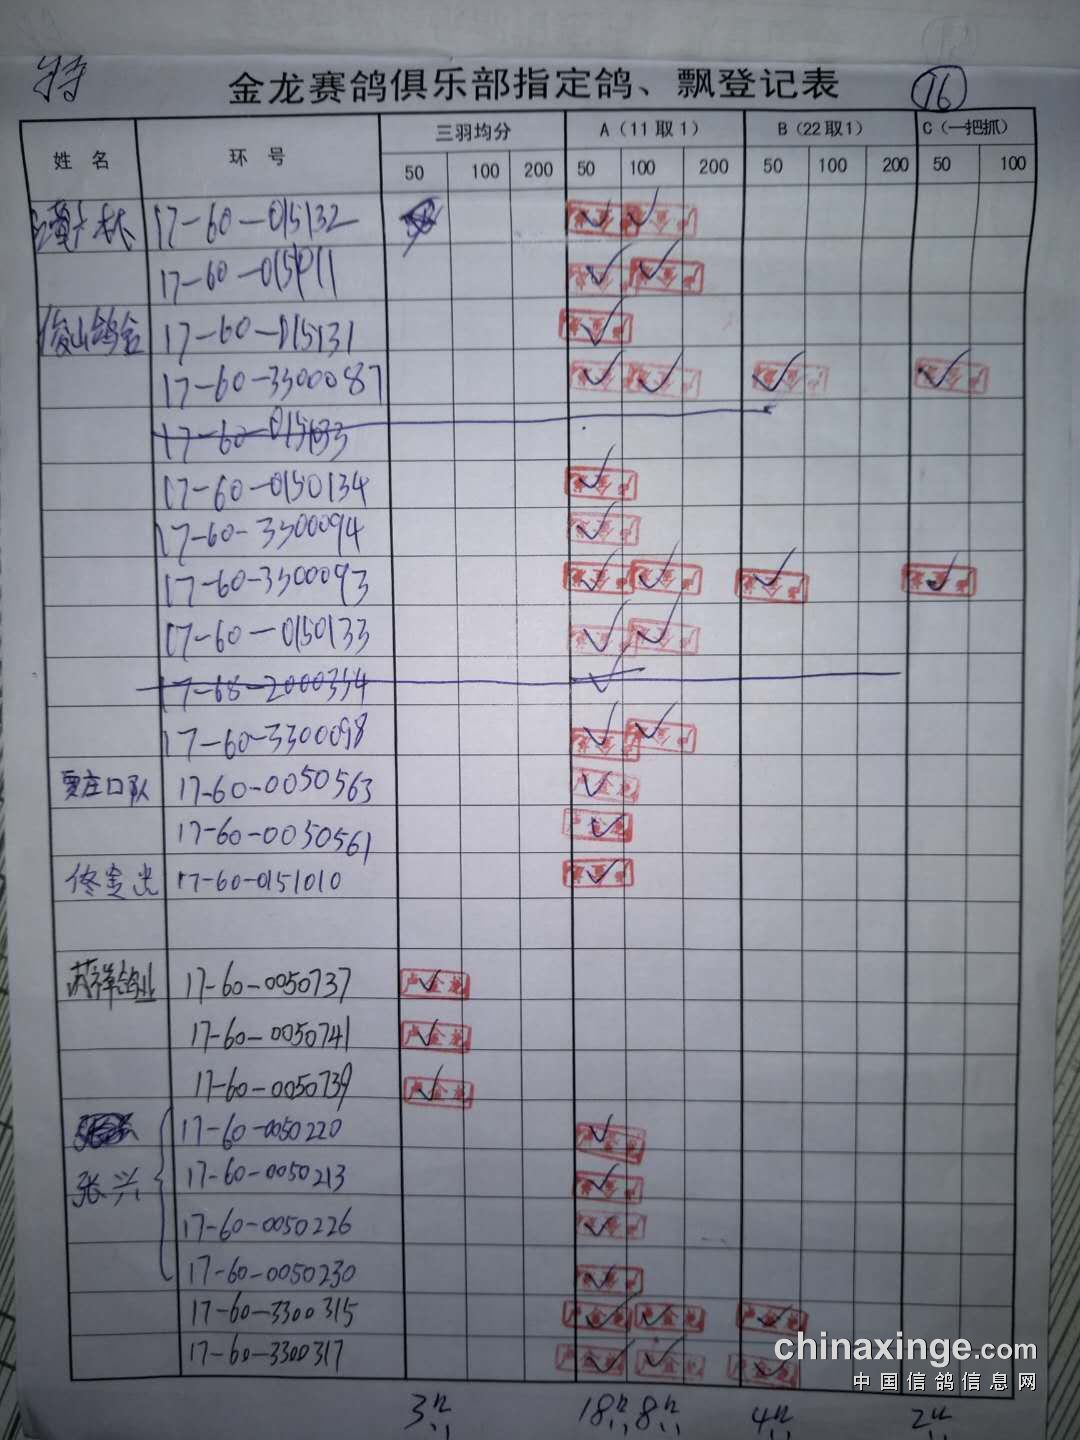 特
金龙赛鸽俱乐部指定鸽、飘登记表 16
姓 名 环 号 三羽均分 A（11取1） B（22取1） C（一把抓）
50 100 200 50 100 200 50 100 200 50 100
17-60-015132
17-60-015011
俊山鸽舍 17-60-015131
17-60-3300087
17-60-015033
17-60-0150134
17-60-3300094
17-60-3300093
17-60-0150133
17-68-2000354
17-60-3300098
贾庄口队 17-60-0050563
17-60-0050561
佟 17-60-0151010
祥鸽业 17-60-0050737 卢金龙
17-60-0050741 卢金龙
17-60-0050739 卢金龙
17-60-0050220
张兴 17-60-0050213
17-60-0050226
17-60-0050230
17-60-3300315 卢金龙 卢金龙 卢金龙
17-60-3300317 卢金龙 卢金龙 卢金龙
3 18 8 4 2
chinaxinge.com
中国信鸽信息网